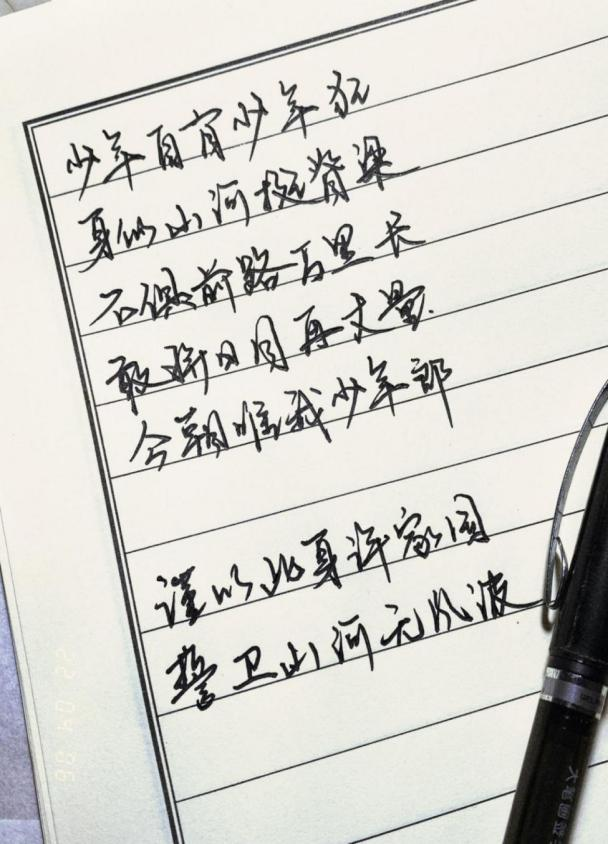 少年自有少年狂
身似山河挺脊梁
不惧前路百里长
敢将日月再丈量
今朝唯我少年郎
谨以此身许家国
誓卫山河无风波